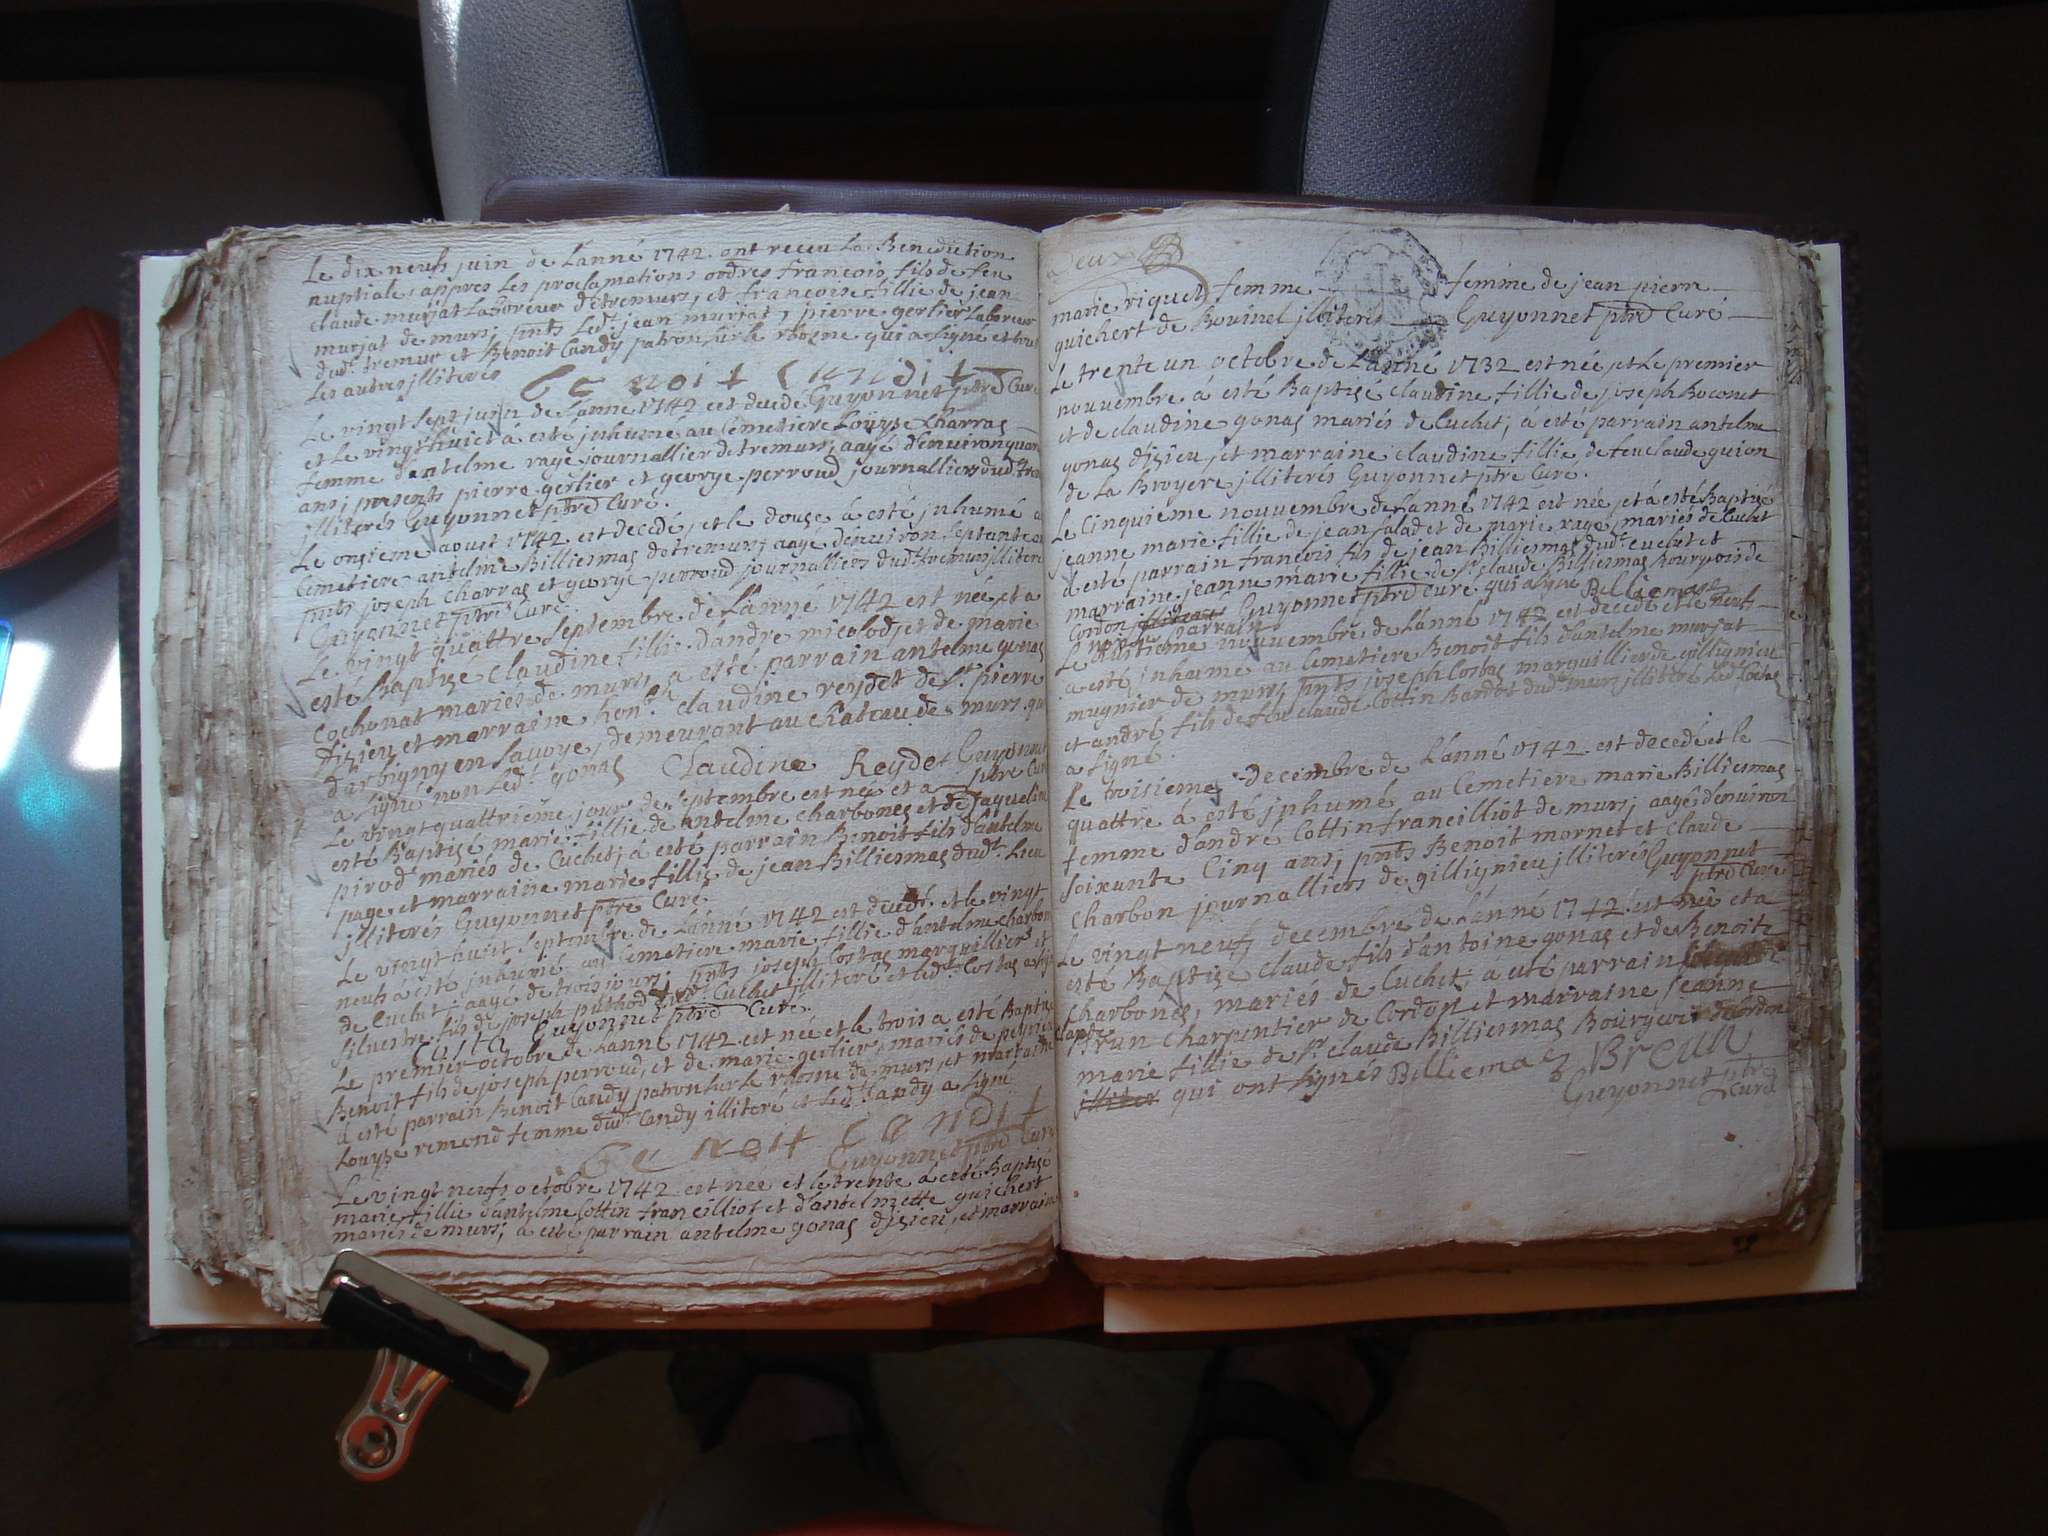 Le dix neufs juin de Lanné 1742 ont receu La Benediction
nuptiale, appres Les proclamations francois fils de feu
claude murjat Laboreur de tremurs, et francoise fillie de jean
murjat de murs, pnts Ledt jean murjat, pierre gerlier Laboreur
dudt tremur et Benoit Candy patron sur le rhosne qui a signé et
Les autres illiteres
benoit Candit Guyonnet ptre Curé
Le vingt sept juin de Lanné 1742 est decede
et Le vingt huict à esté inhumé au cemetiere Louyse Charras
femme dantelme raye journallier de tremurs, aagé denuiron
ans, presents pierre gerlier et george perroud journalliers dudt
illiterés Guyonnet ptre Curé.
Le onsieme aoust 1742 est decedé, et le douze à esté inhumé
Cemetiere antelme Billiemas de tremurs, aagé denuiron septante
pnts joseph Charras et george perroud journalliers dudt tremurs illiteré
Guyonnet ptre Curé.
Le vingt quattre septembre de Lanné 1742 est née, et a
esté Baptisé Claudine fillie dandré micolod et de marie
Cochonat mariés de murs, a esté parrain antelme gonas
disieu, et marraine hon. Claudine reydet de st pierre
darbigny en savoye, demeurant au chateau de murs qui
a signé non Ledt gonas Claudine Reydet Guyonnet
ptre Curé
Le vingt quattrieme jour de septembre est née et a
esté Baptisé marie fillie de antelme charbones et de jaqueline
pirod mariés de Cuchet, à esté parrain Benoit fils dantelme
page, et marraine marie fillie de jean Billiemas dudt Lieu
illiterés Guyonnet ptre Curé
Le vingt huit septembre de Lanné 1742 est decedé et le vingt
neufs à esté inhumé au Cemetiere marie fillie dantelme charbon
de Cuchet aagé de trois jours, pnts joseph Costas marquillier et
silvestre fils de joseph puthod Cuchet illiteré et Ledt Costas
Costa Guyonnet ptre Curé.
Le premier octobre de Lanné 1742 est née et le trois a esté Baptisé
Benoit fils de joseph perroud, et de marie gerlier mariés de
à esté parrain Benoit Candy patron sur le rhosne de murs, et marraine
Louyse remond femme dudt Candy illiteré et Ledt Candy a signé
benoit Candit
Guyonnet ptre Curé
Le vingt neufs octobre 1742 est née et le trente à esté Baptisé
marie fillie dantelme Cottin franeilliot et dantelmette guichert
mariés de murs, a esté parrain antelme gonas disieu, et marraine
Deux
marie riquet femme femme de jean pierre
guichert de Bouinel illiterés Guyonnet ptre Curé
Le trente un octobre de Lanné 1732 est née, et Le premier
nouvembre à esté Baptisé Claudine fillie de joseph Boconet
et de claudine gonas mariés de Cuchet, à esté parrain antelme
gonas disieu, et marraine claudine fillie de feu claude guion
de La Broyere illiterés Guyonnet ptre Curé.
Le Cinquiéme nouvembre de Lanné 1742 est née, et à esté Baptisé
jeanne marie fillie de jean falod et de marie raye, mariés de Cuchet
à esté parrain francois fils de jean Billiemas dudt cuchet et
marraine jeanne marie fillie de sr claude Billiemas Bourgeois de
Cordon illiterés Guyonnet ptre Curé qui a signé Belliemas
non le parrain
Le huitieme nouvembre de Lanné 1742 est decedé et le neufs
a esté inhumé au Cemetiere Benoit fils dantelme murjat
mugnier de murs, pnts joseph Costas marquillier de gillignieu
et andré fils de feu claude Cottin Bardot dudt murs illiteré Ledt Costas
a signé.
Le troisieme decembre de Lanné 1742 est decedé et le
quattre à esté inhumé au Cemetiere marie Billiemas
femme dandré Cottin franeilliot de murs, aagé denuiron
soixante Cinq ans, pnts Benoit mornet et Claude
Charbon journalliers de gillignieu illiterés Guyonnet
ptre Curé
Le vingt neufs decembre de Lanné 1742 est née et a
esté Baptisé Claude fils dantoine gonas et de Benoite
Charbones, mariés de Cuchet, à esté parrain
claude brun Charpentier de Cordon et marraine jeanne
marie fillie de sr claude Billiemas Bourgeois de Cordon
illiter qui ont signés Belliemaz Breun
Guyonnet ptre
Curé